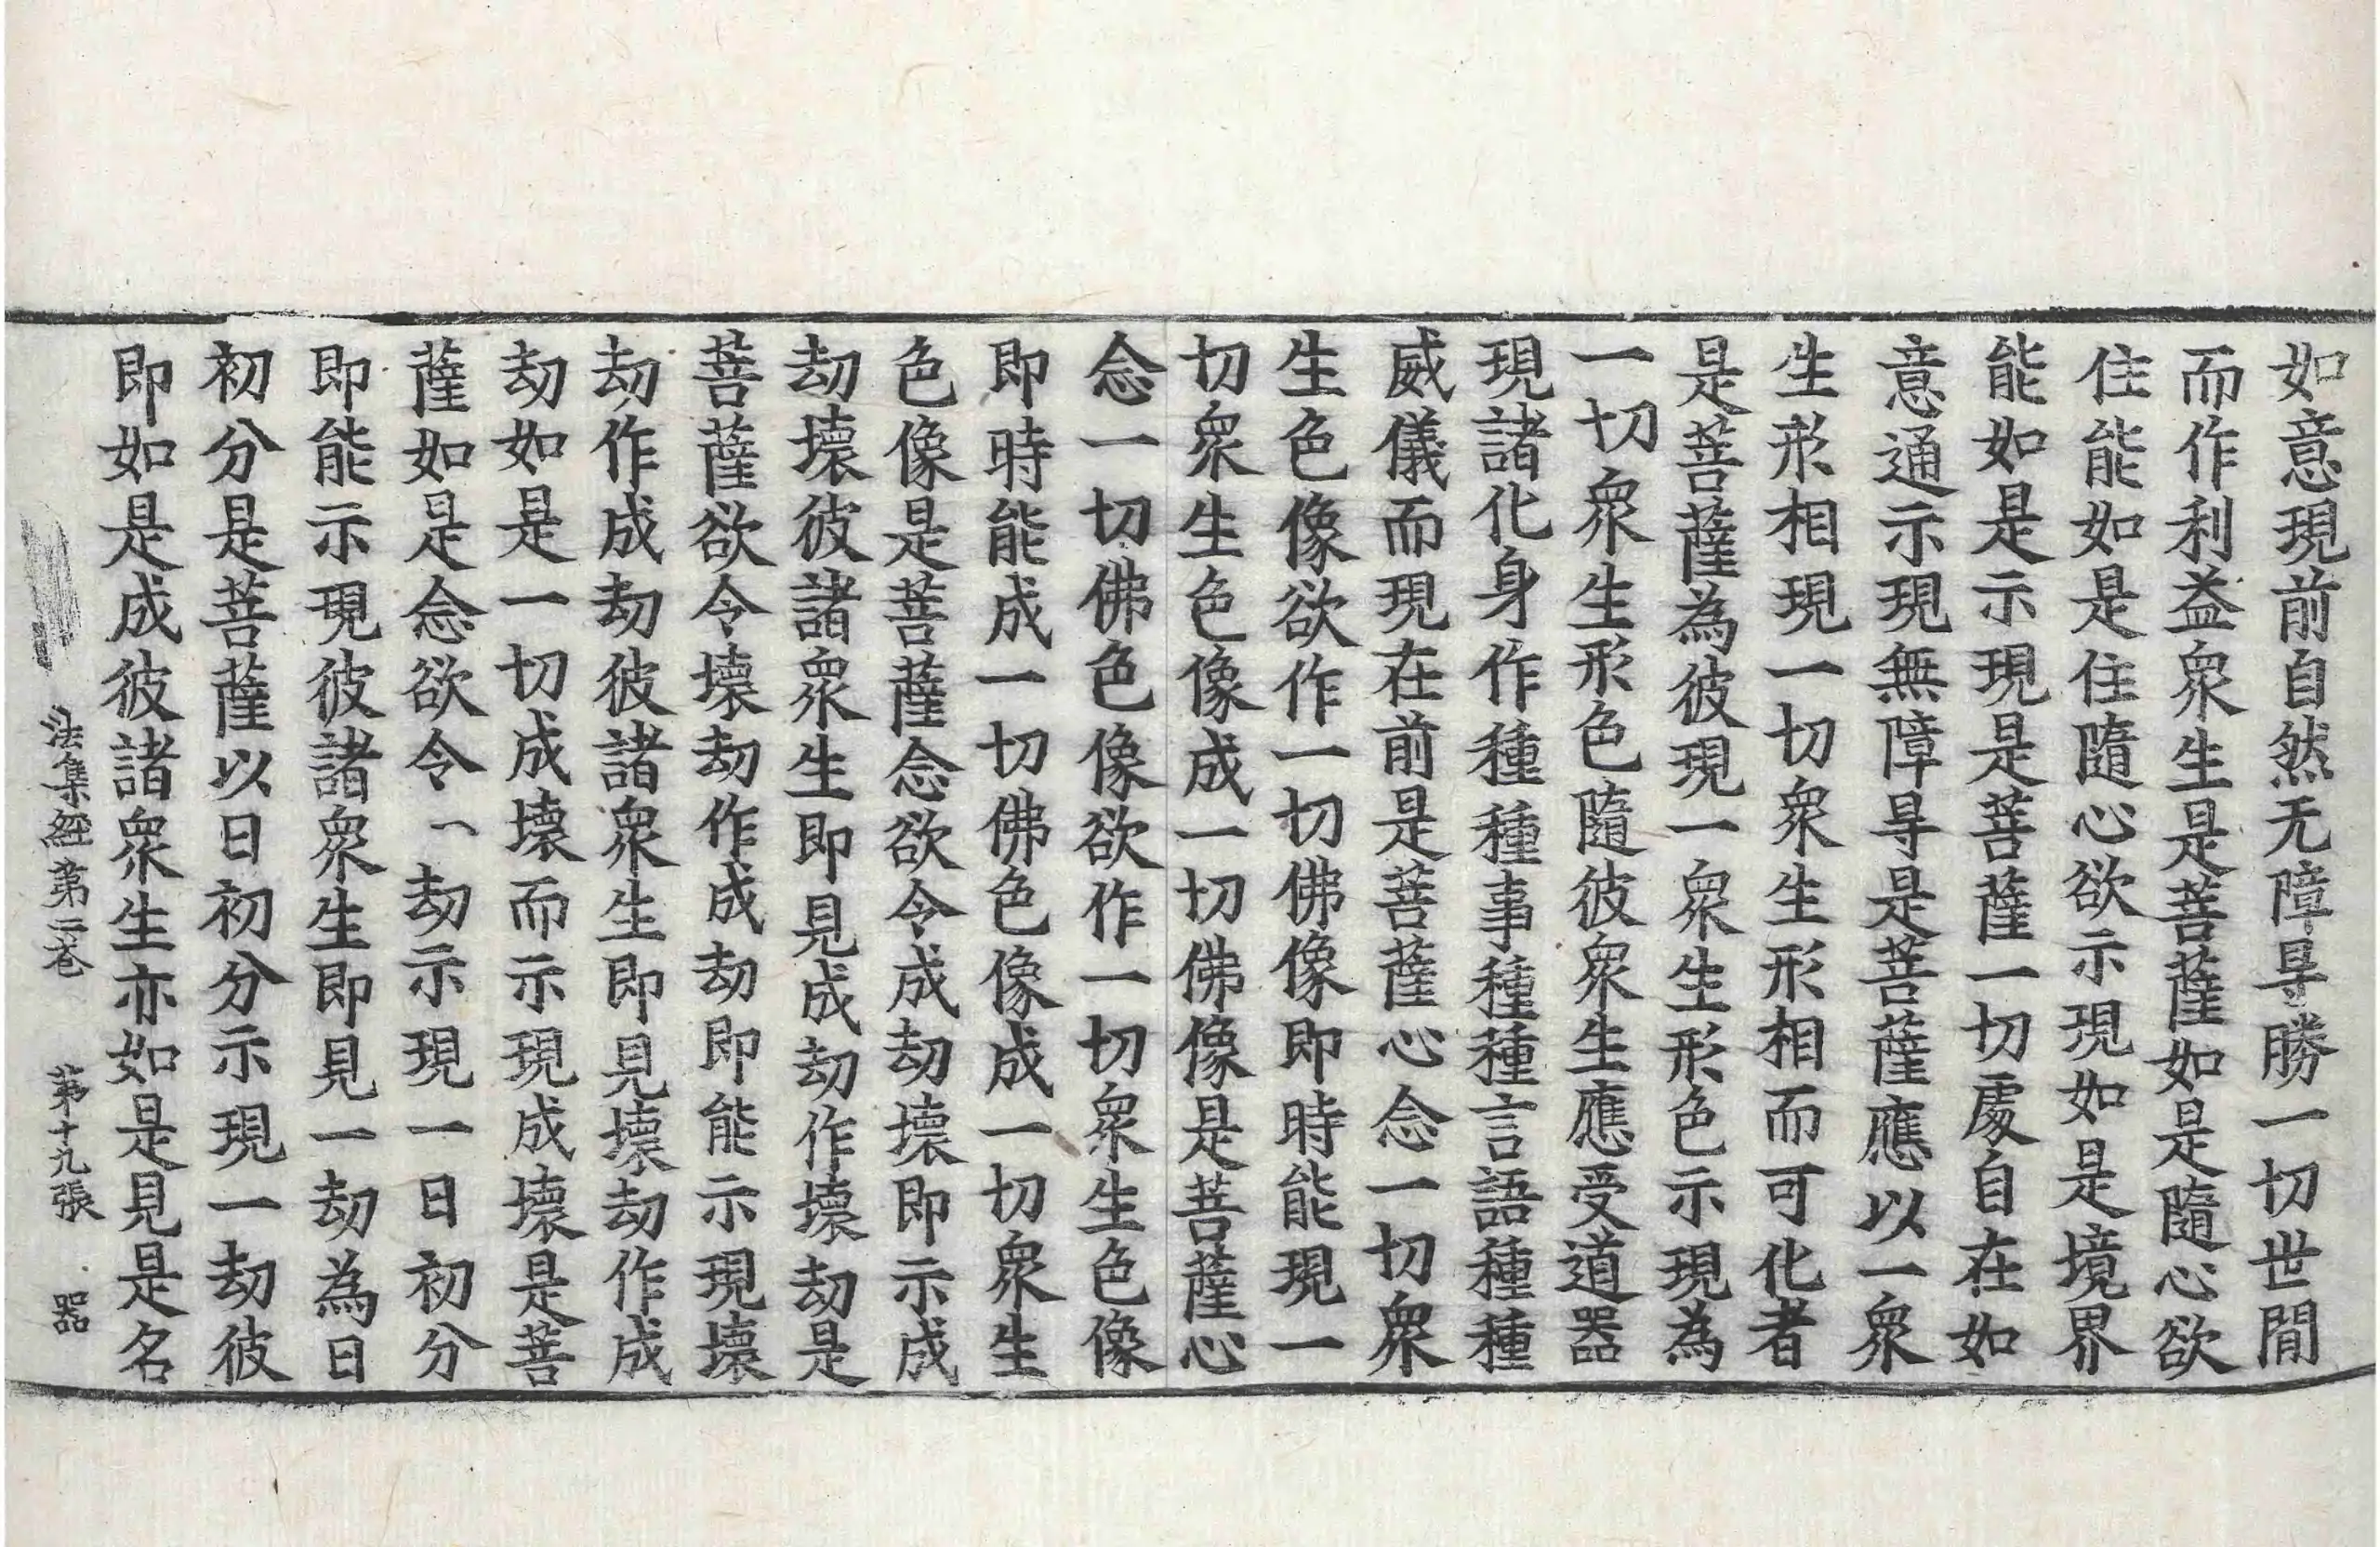 如意現前自然无障㝵勝一切世閒
而作利益衆生是菩薩如是隨心欲
住能如是住隨心欲示現如是境界
能如是示現是菩薩一切處自在如
意通示現無障㝵是菩薩應以一衆
生形相現一切衆生形相而可化者
是菩薩為彼現一衆生形色示現為
一切衆生形色隨彼衆生應受道器
現諸化身作種種事種種言語種種
威儀而現在前是菩薩心念一切衆
生色像欲作一切佛像即時能現一
切衆生色像成一切佛像是菩薩心
念一切佛色像欲作一切衆生色像
即時能成一切佛色像成一切衆生
色像是菩薩念欲令成劫壞即示成
劫壞彼諸衆生即見成劫作壞劫是
菩薩欲令壞劫作成劫即能示現壞
劫作成劫彼諸衆生即見壞劫作成
劫如是一切成壞而示現成壞是菩
薩如是念欲令一劫示現一日初分
即能示現彼諸衆生即見一劫為日
初分是菩薩以日初分示現一劫彼
即如是成彼諸衆生亦如是見是名
法集經第二卷 第十九張 器